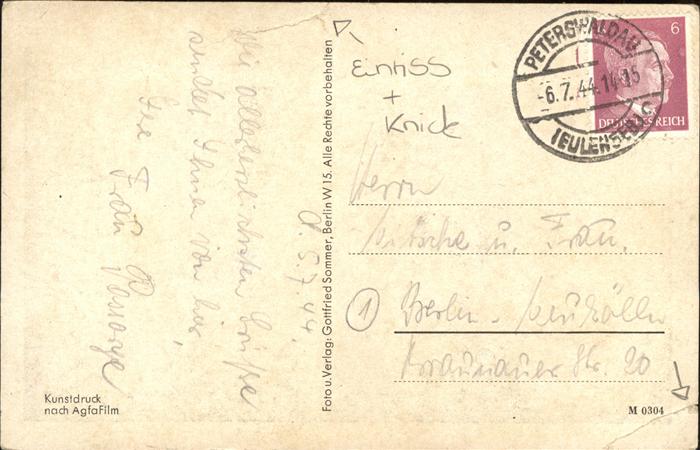 d. 5.7.44.
Die allerherzlichsten Grüße
sendet Ihnen von hier,
Ihre Frau
Foto u. Verlag: Gottfried Sommer, Berlin W 15. Alle Rechte vorbehalten
Einriss
+
Knick
PETERSWALDAU
-6.7.44.14-15
(EULENGEB.)
6
DEUTSCHES REICH
Herrn
u. Frau.
1 Berlin - Neukölln
Braunauer Str. 20
Kunstdruck
nach AgfaFilm
M 0304